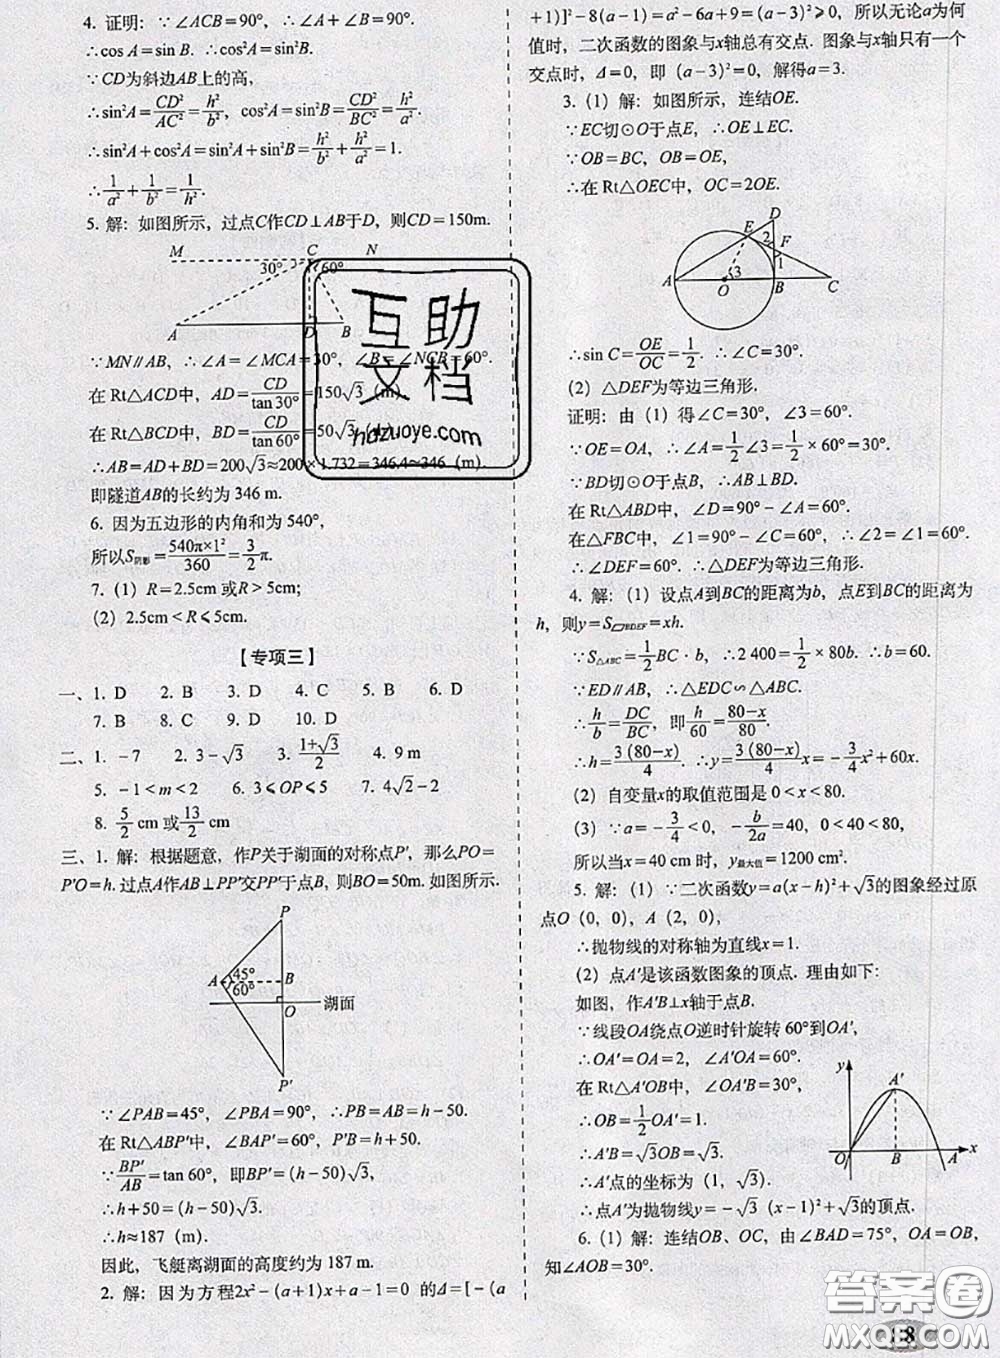 4. 证明：∵∠ACB=90°，∴∠A+∠B=90°.
∴cos A=sin B.
∵CD为斜边AB上的高，
∴sin²A=CD²/AC²=h²/b²，cos²A=sin²B=CD²/BC²=h²/a².
∴sin²A+cos²A=sin²A+sin²B=h²/b²+h²/a²=1.
∴1/a²+1/b²=1/h².
5. 解：如图所示，过点C作CD⊥AB于D，则CD=150m.
M C N
30° 60°
A D B
∵MN∥AB，∴∠A=∠MCA=30°，∠B=∠NCB=60°.
在 Rt△ACD中，AD=CD/tan30°=150√3（m）.
在 Rt△BCD中，BD=CD/tan60°=50√3（m）.
∴AB=AD+BD=200√3≈200×1.732=346.4≈346（m）.
即隧道AB的长约为 346 m.
6. 因为五边形的内角和为 540°，
所以S阴影=540π×1²/360=3/2π.
7.（1）R=2.5cm 或R>5cm；
（2）2.5cm<R⩽5cm.
【专项三】
一、1. D 2. B 3. D 4. C 5. B 6. D
7. B 8. C 9. D 10. D
二、1. -7 2. 3-√3 3. (1+√3)/2 4. 9 m
5. -1<m<2 6. 3⩽OP⩽5 7. 4√2-2
8. 5/2 cm 或 13/2 cm
三、1. 解：根据题意，作P关于湖面的对称点P′，那么PO=
P′O=h. 过点A作AB⊥PP′交PP′于点B，则BO=50m. 如图所示.
P
A 45° B
60°
O 湖面
P′
∵∠PAB=45°，∠PBA=90°，∴PB=AB=h-50.
在 Rt△ABP′中，∠BAP′=60°，P′B=h+50.
∵BP′/AB=tan 60°，即BP′=(h-50)√3.
∴h+50=(h-50)√3.
∴h≈187（m）.
因此，飞艇离湖面的高度约为 187 m.
2. 解：因为方程2x²-(a+1)x+a-1=0 的Δ=[-(a
+1)]²-8(a-1)=a²-6a+9=(a-3)²⩾0，所以无论a为何
值时，二次函数的图象与x轴总有交点. 图象与x轴只有一个
交点时，Δ=0，即 (a-3)²=0，解得a=3.
3.（1）解：如图所示，连结OE.
∵EC切⊙O于点E，∴OE⊥EC.
∵OB=BC，OB=OE，
∴在 Rt△OEC中，OC=2OE.
D
E 2 F
1
3
A O B C
∴sin C=OE/OC=1/2. ∴∠C=30°.
（2）△DEF为等边三角形.
证明：由（1）得∠C=30°，∠3=60°.
∵OE=OA，∴∠A=1/2∠3=1/2×60°=30°.
∵BD切⊙O于点B，∴AB⊥BD.
在 Rt△ABD中，∠D=90°-∠A=60°.
在△FBC中，∠1=90°-∠C=60°. ∴∠2=∠1=60°.
∴∠DEF=60°. ∴△DEF为等边三角形.
4. 解：（1）设点A到BC的距离为b，点E到BC的距离为
h，则y=S▱BDEF=xh.
∵S△ABC=1/2BC·b，∴2 400=1/2×80b. ∴b=60.
∵ED∥AB，∴△EDC∽△ABC.
∴h/b=DC/BC，即h/60=(80-x)/80.
∴h=3(80-x)/4. ∴y=3(80-x)/4 x=-3/4x²+60x.
（2）自变量x的取值范围是 0<x<80.
（3）∵a=-3/4<0，-b/2a=40，0<40<80，
所以当x=40 时，y最大值=1200 cm².
5. 解：（1）∵二次函数y=a(x-h)²+√3的图象经过原
点O（0，0），A（2，0），
∴抛物线的对称轴为直线x=1.
（2）点A′是该函数图象的顶点. 理由如下：
如图，作A′B⊥x轴于点B.
∵线段OA绕点O逆时针旋转 60°到OA′，
∴OA′=OA=2，∠A′OA=60°.
在 Rt△A′OB中，∠OA′B=30°，
∴OB=1/2OA′=1.
∴A′B=√3OB=√3.
∴A′点的坐标为（1，√3）.
∴点A′为抛物线y=-√3 (x-1)²+√3的顶点.
y
A′
O B A x
6.（1）解：连结OB、OC，由∠BAD=75°，OA=OB，
知∠AOB=30°.
互助
文档
hdzuoye.com
答案圈
MXQE.COM